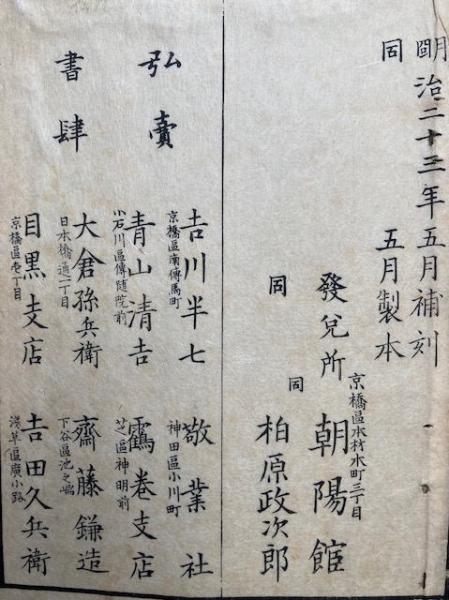 明治二十三年五月補刻
同 五月製本
京橋區本材木町三丁目
發兌所 朝陽館
同 同 柏原政次郎
弘賣
京橋區南傳馬町
吉川半七
神田區小川町
敬業社
小石川區傳隨院前
青山清吉
芝區神明前
鶴巻支店
書肆
日本橋通一丁目
大倉孫兵衛
下谷區池之端
齋藤鎌造
京橋區壱丁目
目黒支店
淺草區廣小路
吉田久兵衛